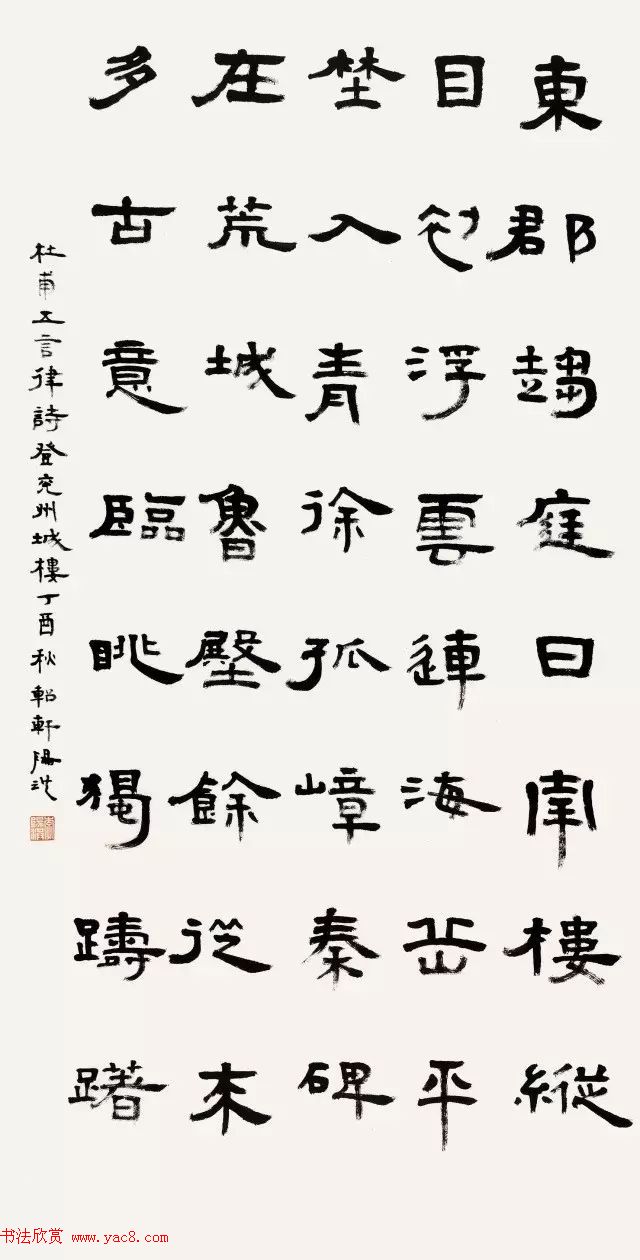 東郡趨庭日南樓縱
目初浮雲連海岳平
埜入青徐孤嶂秦碑
在荒城魯壂餘從來
多古意臨眺獨躊躇
杜甫五言律詩登兗州城樓丁酉秋軺軒
书法欣赏 www.yac8.com